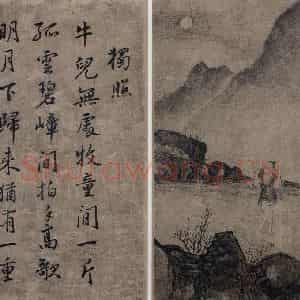 獨照
牛兒無處牧童閒一片
孤雲碧嶂間拍手高歌
明月下歸來猶有一重
Shufawang.CN